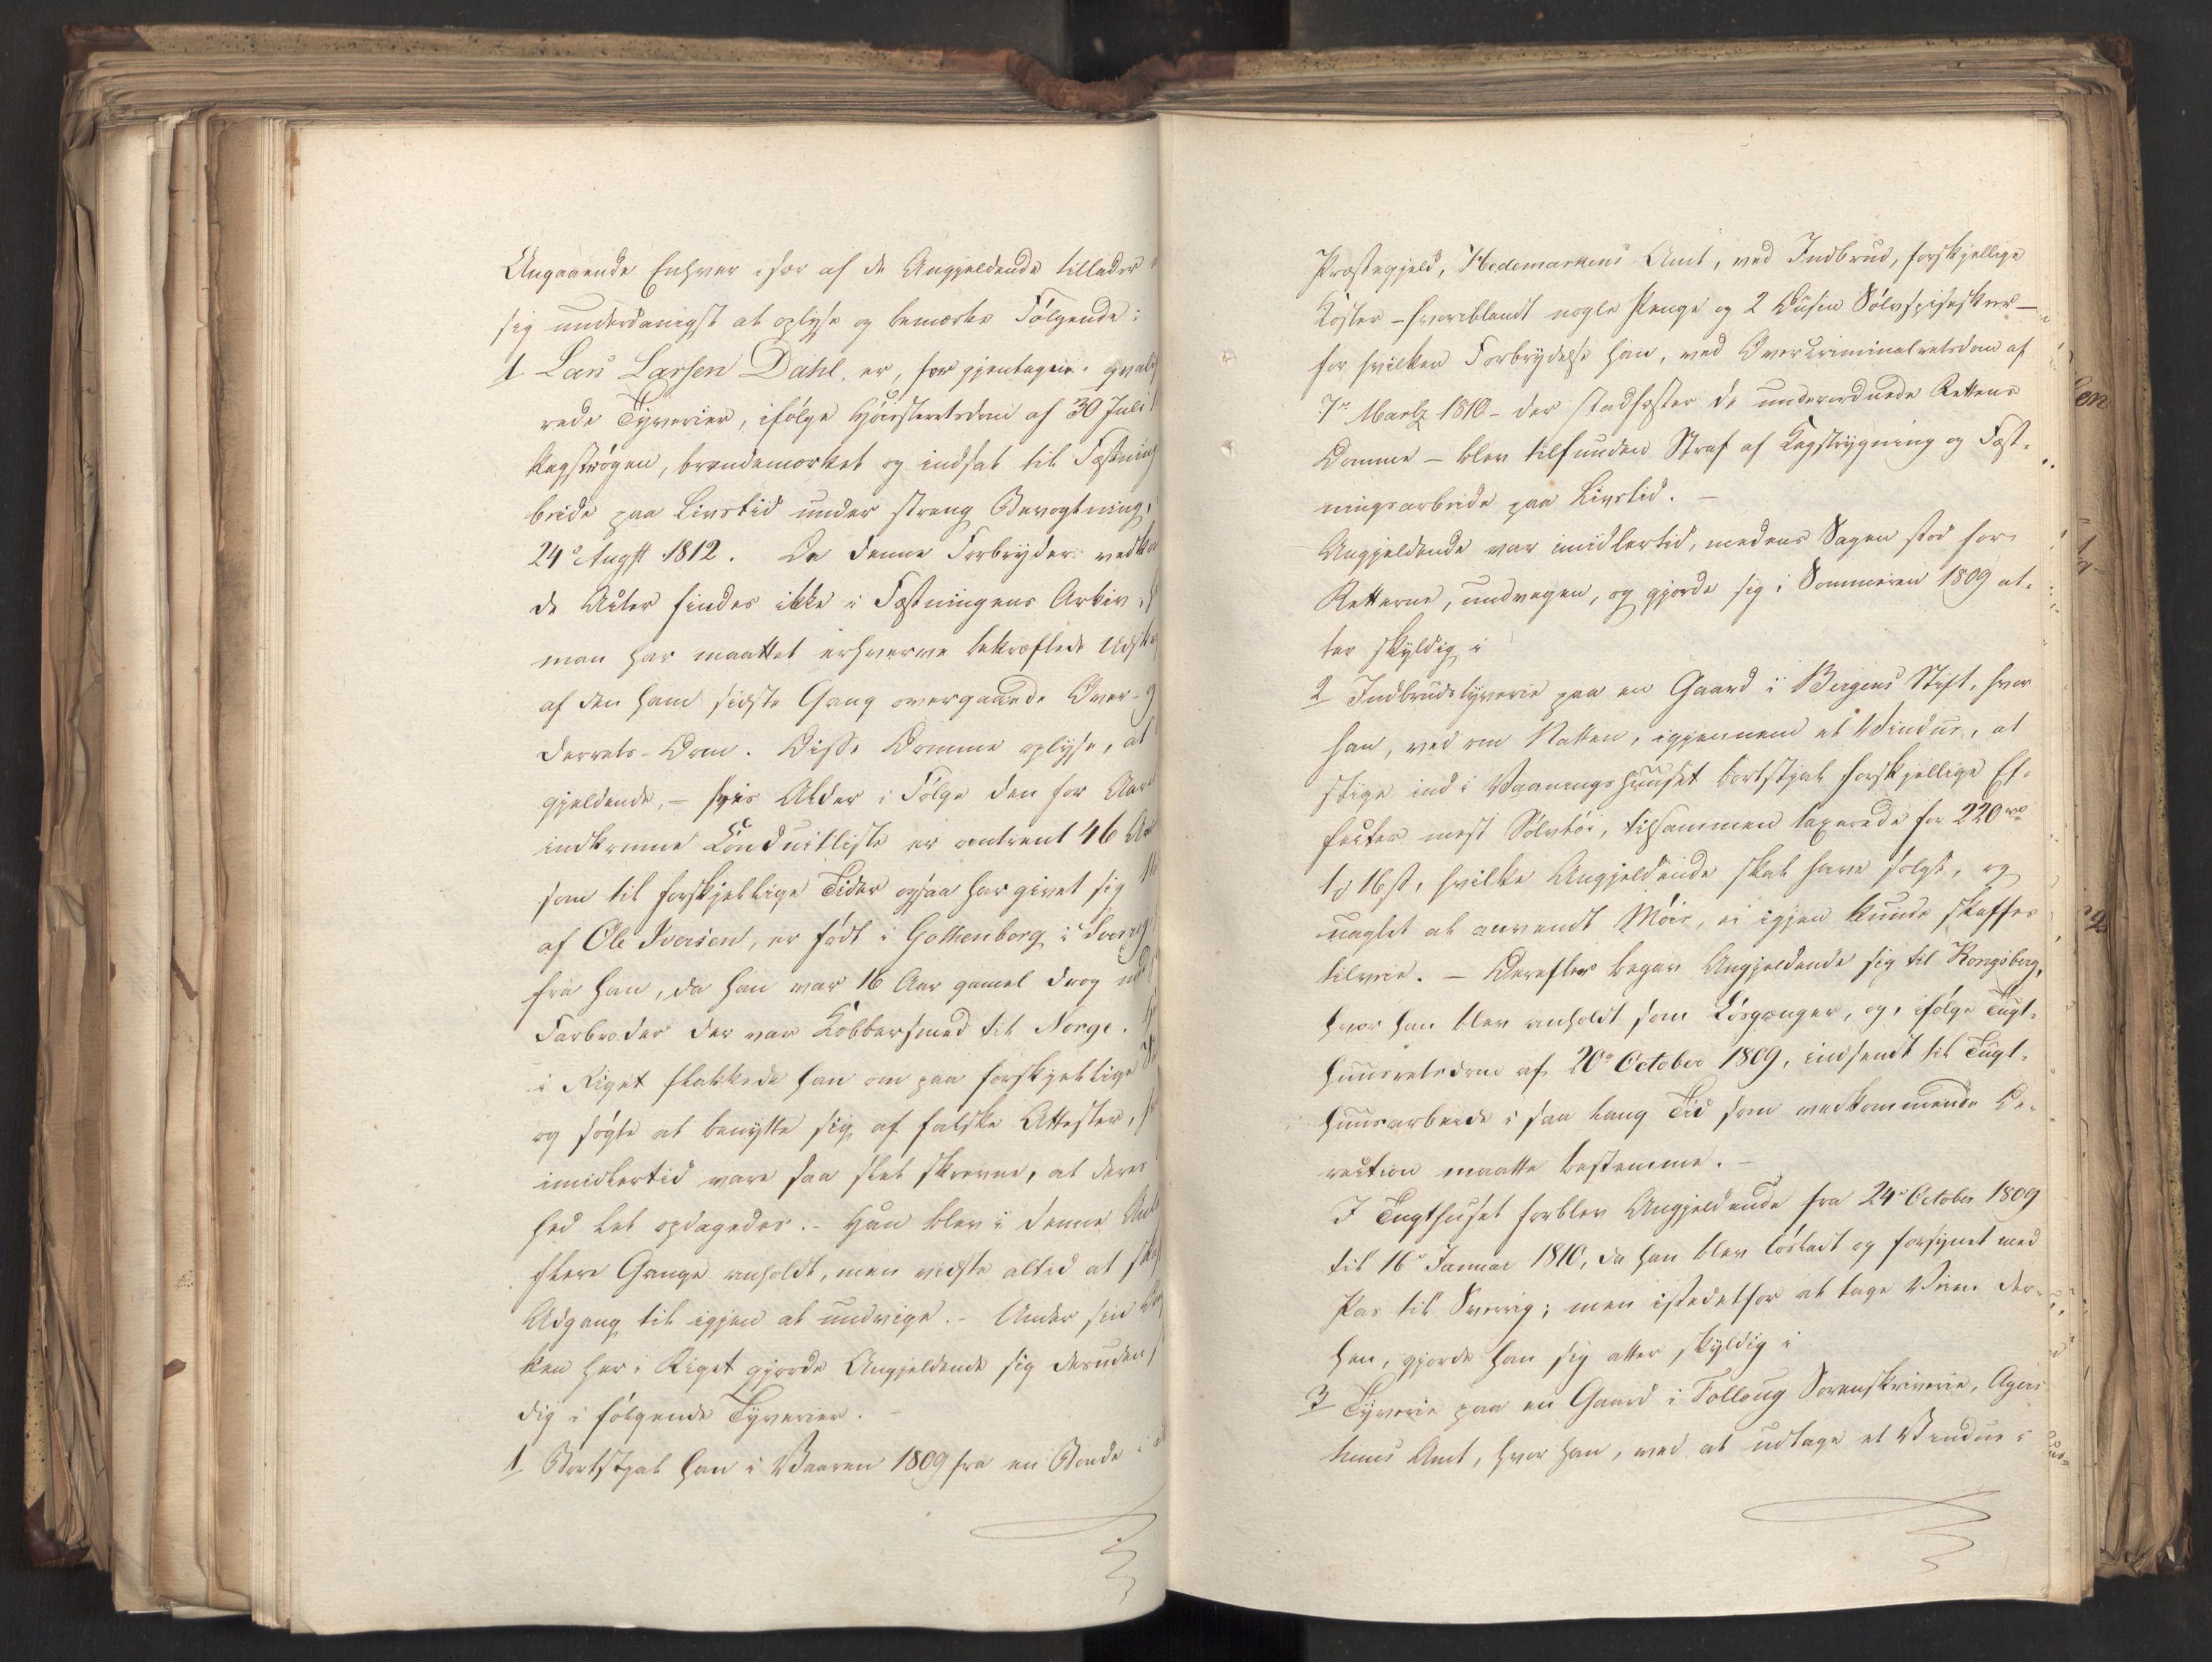 Angaaende Enhver især af de Angjeldende tillader
sig underdanigst at oplyse og bemærke Følgende:
1 Lars Larsen Dahl, er, for gjentagne qvali
rede Tyverier, ifølge Høiesteretsdom af 30 Juli
kagstrøgen, brændemærket og indsat til Fæstning
beide paa Livstid under streng Bevogtning,
24e Augst 1812. Da denne Forbryder vedko
de Acter findes ikke i Fæstningens Arkiv,
man har maattet erhverve bekræftede Udskr
af den ham sidste Gang overgaaede Over-
derrets-Dom. Disse Domme oplyse, at
gjeldende, – hvis Alder i Følge den for Aar
indkomne Conduitliste er omtrent 46 Aar
som til forskjellige Tider ogsaa har givet sig
af Ole Iversen, er født i Gothenborg i Sverrig
fra han, da han var 16 Aar gamel drog
Farbroder der var Kobbersmed til Norge.
i Riget flakkede han om paa forskjellige
og søgte at benytte sig af falske Attester,
imidlertid vare saa slet skrevne, at deres
hed let opdagedes. – Han blev i denne
flere Gange anholdt, men vidste altid at
Adgang til igjen at undvige. – Under sin
ken her i Riget gjorde Angjeldende sig desuden
dig i følgende Tyverier. –
1 Bortstjal han i Vaaren 1809 fra en Bonde i
Præstegjeld, Hedemarkens Amt, ved Indbrud, forskjellige
Koster – hvoriblandt nogle Penge og 2 Dusin Sølvspiseskeer –
for hvilken Forbrydelse han, ved Overcriminalretsdom af
7de Martz 1810 – der stadfæster de underordnede Retters
Domme – blev tilfunden Straf af Kagstrygning og Fæst-
ningsarbeide paa Livstid. –
Angjeldende var imidlertid, medens Sagen stod for
Retterne, undvegen, og gjorde sig i Sommeren 1809 at-
ter skyldig i
2 Indbrudstyverie paa en Gaard i Bergens Stift, hvor
han, ved om Natten, igjennem et Vindue, at
stige ind i Vaaningshuuset bortstjal forskjellige Ef-
fecter mest Sølvtøi, tilsammen taxerede for 220 rd
1 16 s, hvilke Angjeldende skal have solgt, og
uagtet al anvendt Møie, ei igjen kunde skaffes
tilveie. – Derefter begav Angjeldende sig til Kongsberg,
hvor han blev anholdt som Løsgænger, og, ifølge Tugt-
huusretsdom af 20e October 1809, indsendt til Tugt-
huusarbeide i saa lang Tid som vedkommende Di-
rection maatte bestemme. –
I Tugthuset forblev Angjeldende fra 24e October 1809
til 16e Januar 1810, da han blev løsladt og forsynet med
Pas til Sverrig; men istedetfor at tage Veien der-
hen, gjorde han sig atter skyldig i
3 Tyverie paa en Gaard i Folloug Sorenskriverie, Agers-
huus Amt, hvor han, ved at udtage et Vindue i